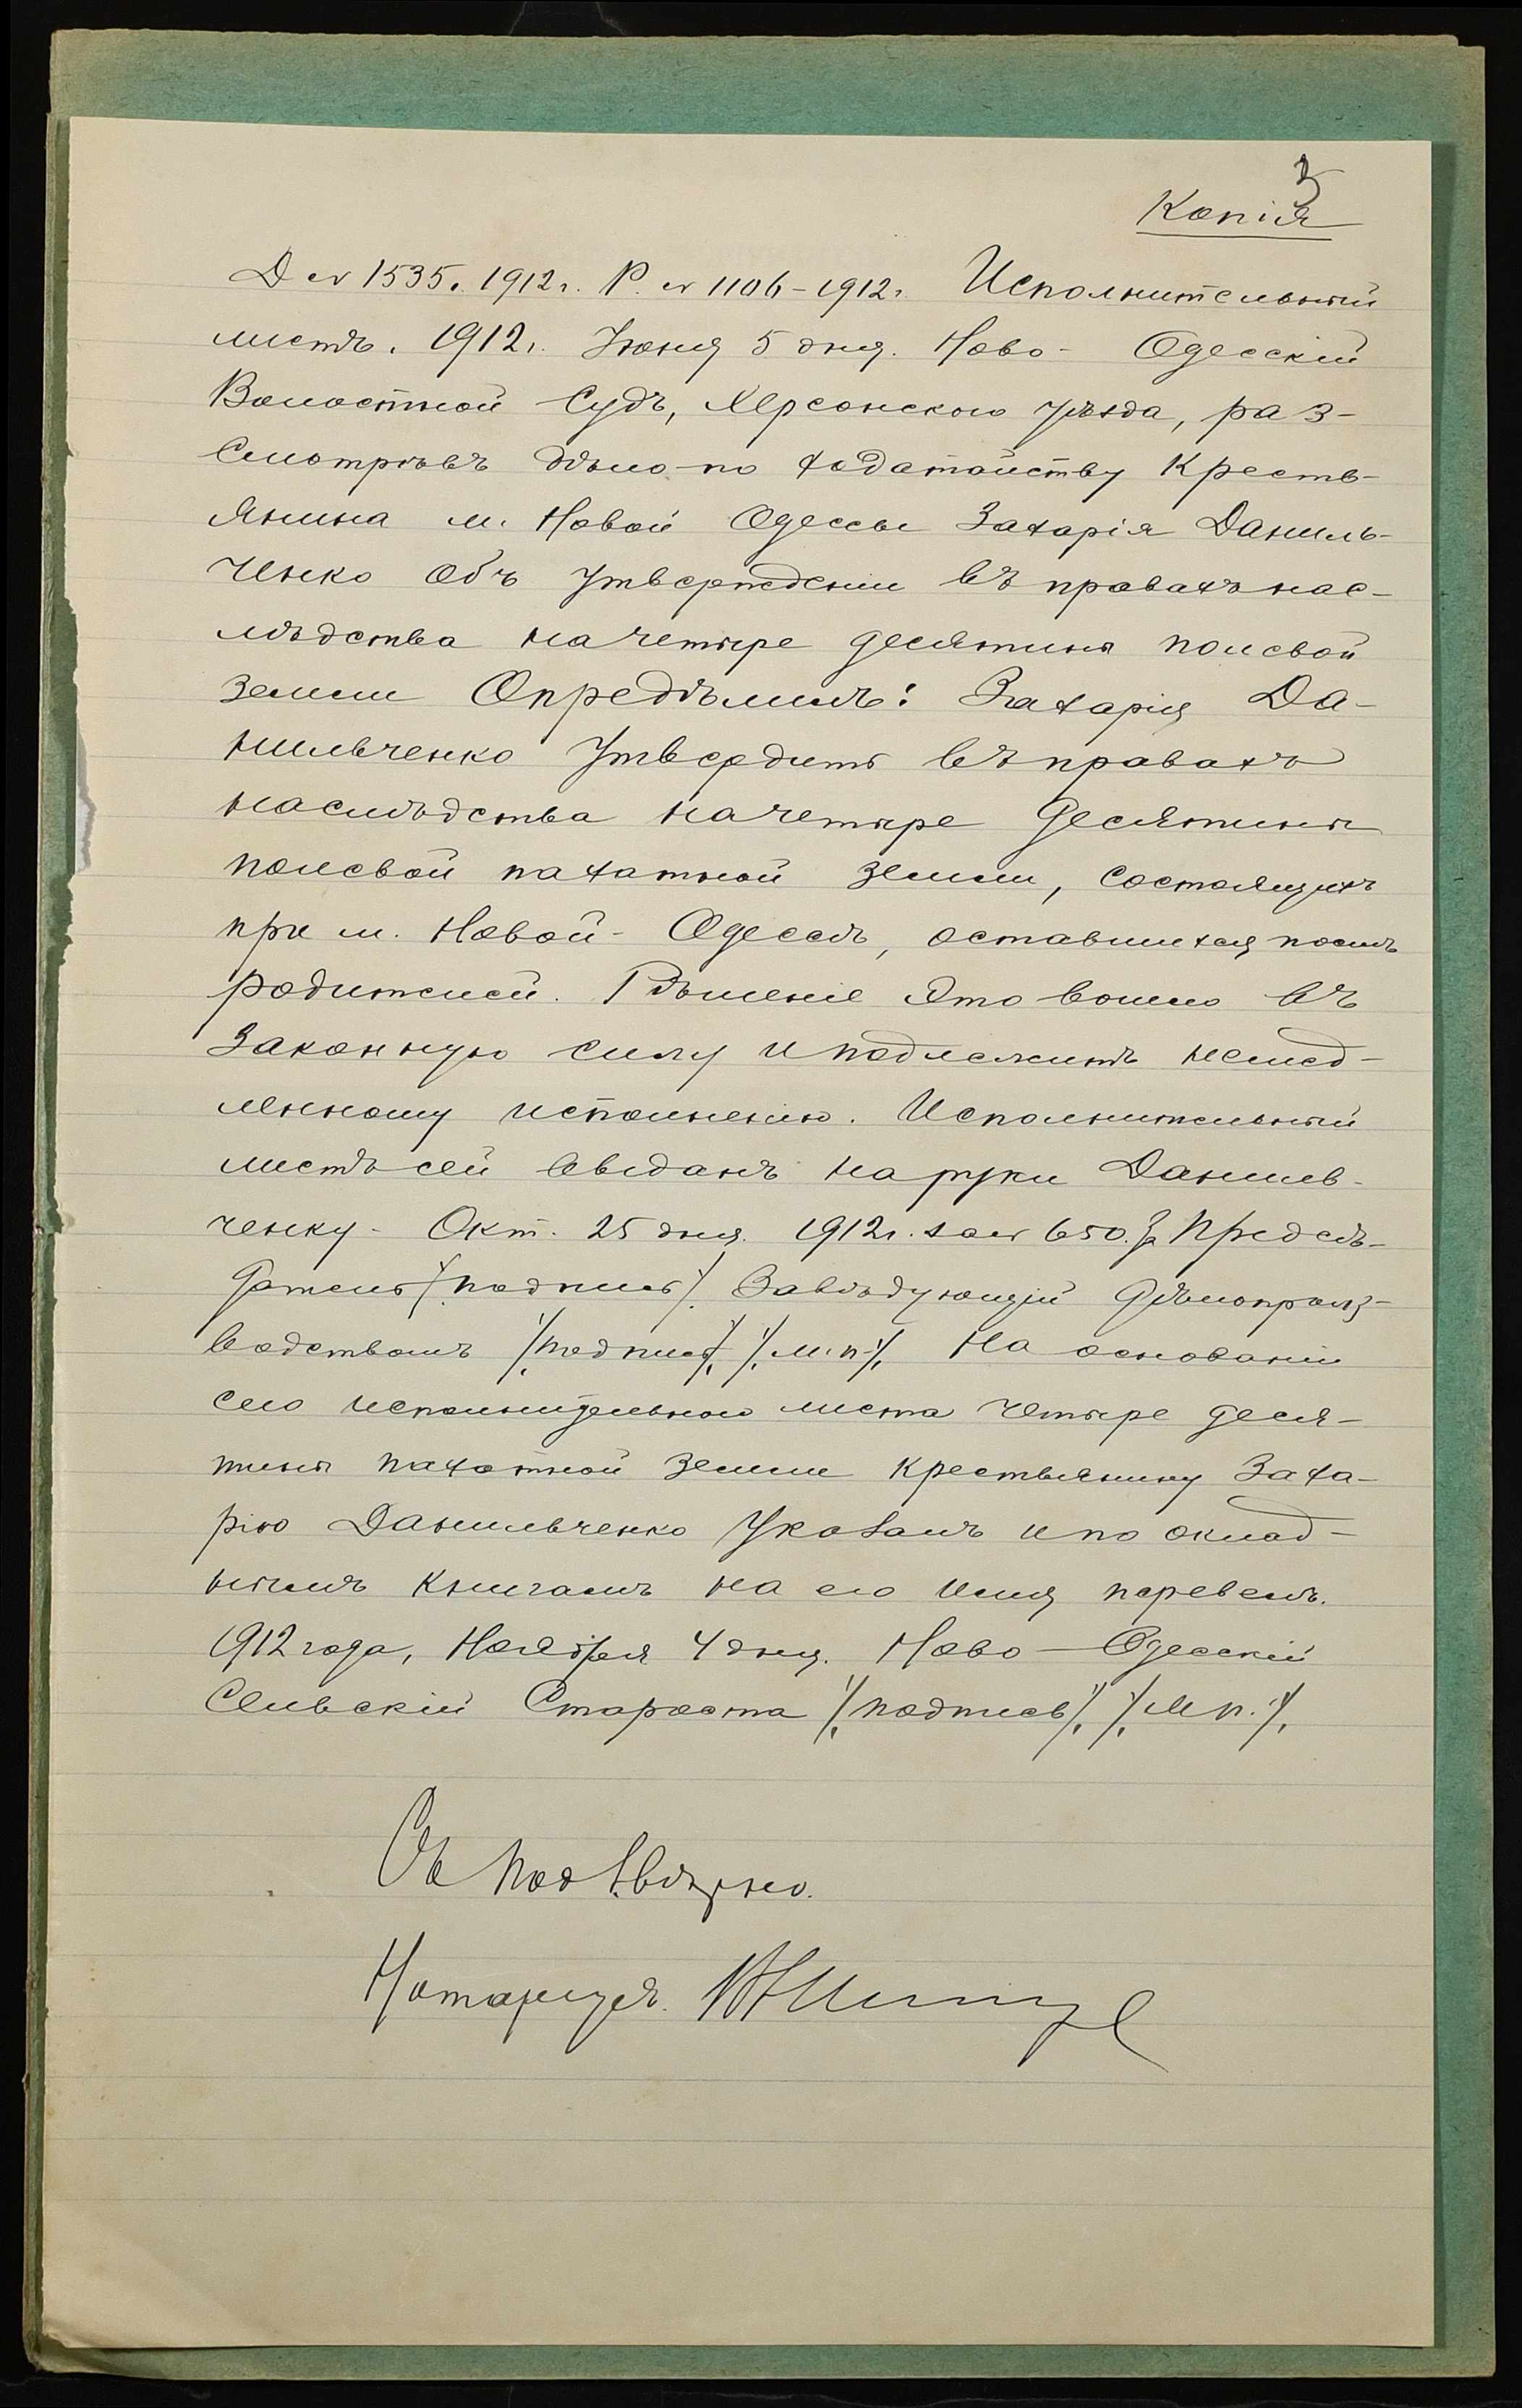 3
Копія
Д № 1535. 1912 г. Р. № 1106-1912 г. Исполнительный
листъ. 1912 г. Іюня 5 дня. Ново- Одесскій
Волостной Судъ, Херсонского уѣзда, раз-
смотрѣвъ дѣло по ходатайству Кресть-
янина м. Новой Одессы Захарія Даниль-
ченко объ утвержденіи въ правахъ нас-
лѣдства на четыре десятины полевой
земли Опредѣлилъ: Захарія Да-
нильченко утвердить въ правахъ
наслѣдства на четыре десятины
полевой пахатной земли, состоящихъ
при м. Новой- Одессѣ, оставшихся послѣ
родителей. Рѣшеніе это вошло въ
законную силу и подлежитъ немед-
ленному исполненію. Исполнительный
листъ сей выданъ на руки Данильв-
ченку- Окт. 25 дня. 1912 г. за № 650. За Предсѣ-
дателя /подпись/. Завѣдующій дѣлопроиз-
водствомъ /подпись/, /м.п./, На основаніи
сего исполнительного листа четыре деся-
тины пахотной земли крестьянину Заха-
рію Данильченко указалъ и по оклад-
нымъ книгамъ на его имя перевелъ.
1912 года, Ноября 4 дня. Ново- Одесскій
Сельскій Староста /подпись/, /М п./,
Съ под. вѣрно.
Нотаріусъ.